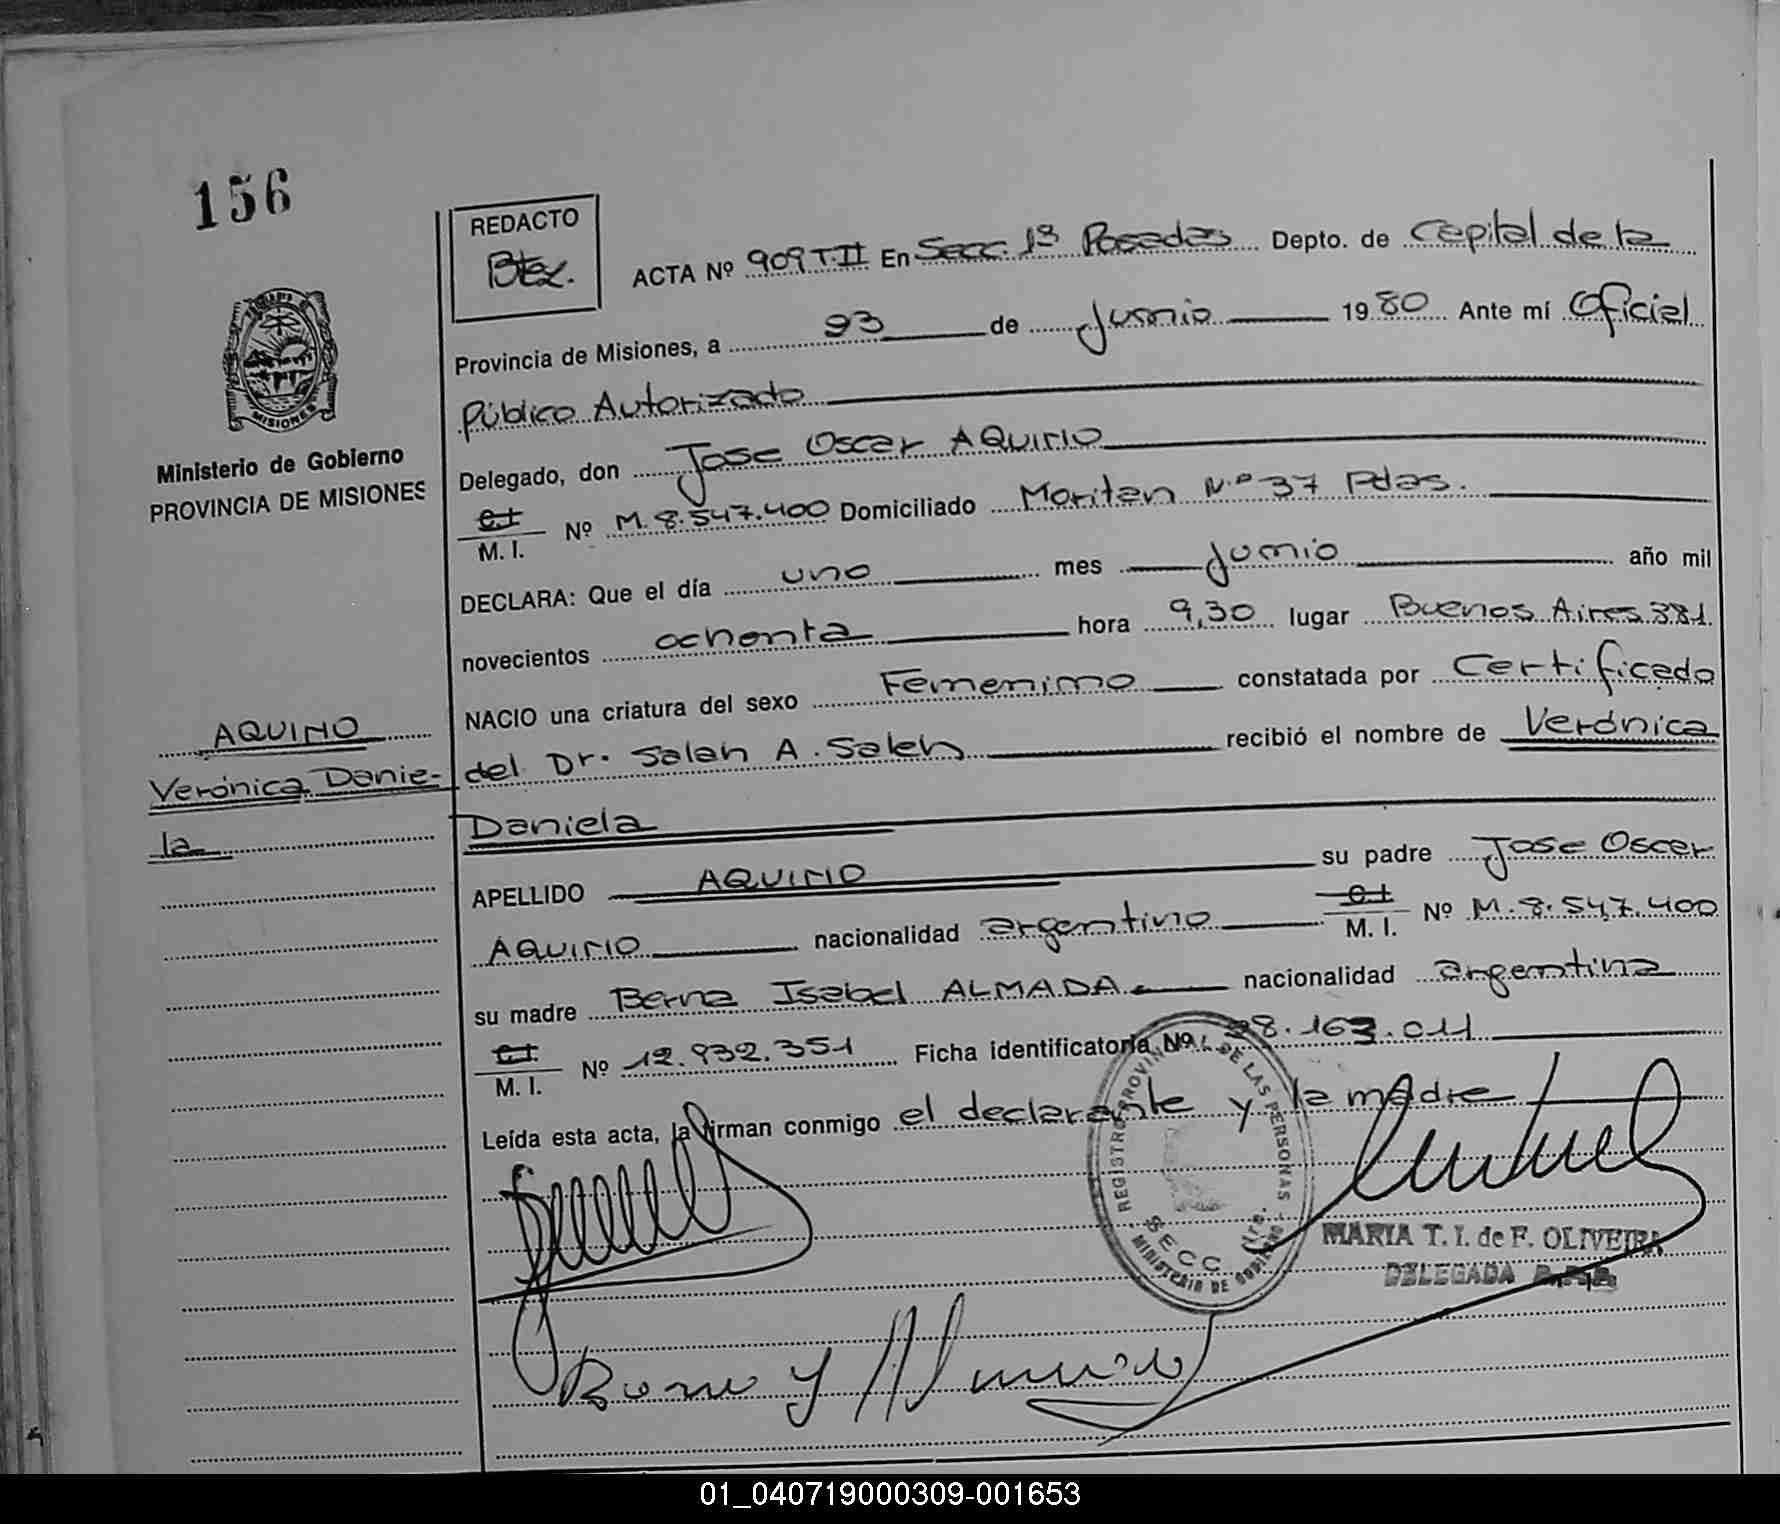 156
REDACTO
Btez.
ACTA Nº 909 T.II En Secc. 1ª Posadas Depto. de Capital de la
Provincia de Misiones, a 93 de Junio 1980 Ante mí Oficial
Público Autorizado
Delegado, don Jose Oscar AQUINO
C.I. M. I. Nº M. 8.547.400 Domiciliado Moritan Nº 37 Pdas.
DECLARA: Que el día uno mes Junio año mil
novecientos ochenta hora 9,30 lugar Buenos Aires 381
NACIO una criatura del sexo Femenino constatada por Certificado
del Dr. Saleh A. Saleh recibió el nombre de Verónica
Daniela
APELLIDO AQUINO su padre Jose Oscar
AQUINO nacionalidad argentino C.I. M. I. Nº M. 8.547.400
su madre Berna Isabel ALMADA nacionalidad argentina
C.I. M. I. Nº 12.932.351 Ficha identificatoria Nº 28.163.011
Leída esta acta, la firman conmigo el declarante y la madre
Ministerio de Gobierno
PROVINCIA DE MISIONES
MISIONES
AQUINO
Verónica Danie-
la
REGISTRO PROVINCIAL DE LAS PERSONAS
SECC. 1ra.
MINISTERIO DE GOBIERNO
MARIA T. I. de F. OLIVEIRA
DELEGADA
01_040719000309-001653